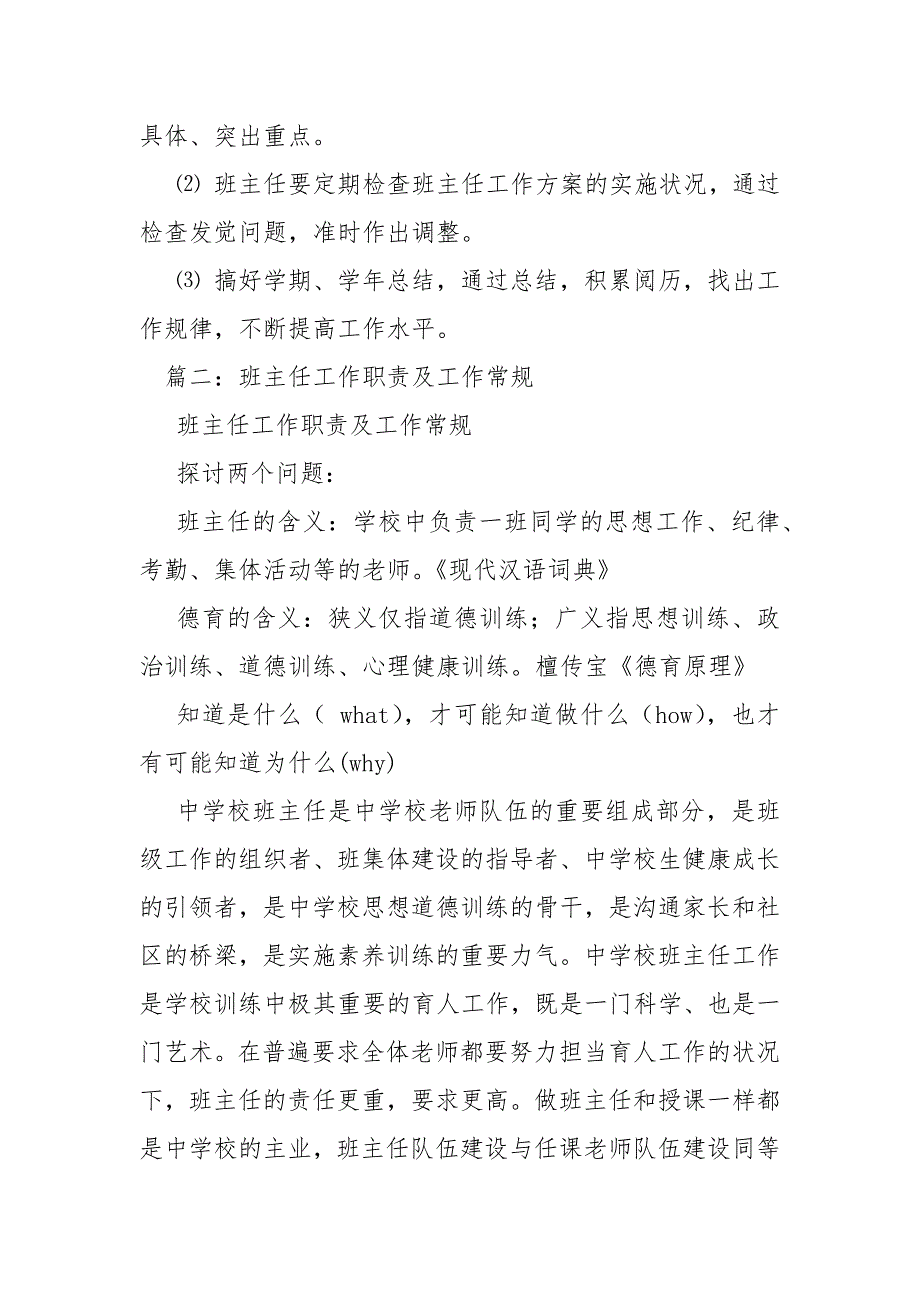 具体、突出重点。
⑵ 班主任要定期检查班主任工作方案的实施状况，通过
检查发觉问题，准时作出调整。
⑶ 搞好学期、学年总结，通过总结，积累阅历，找出工
作规律，不断提高工作水平。
篇二：班主任工作职责及工作常规
班主任工作职责及工作常规
探讨两个问题：
班主任的含义：学校中负责一班同学的思想工作、纪律、
考勤、集体活动等的老师。《现代汉语词典》
德育的含义：狭义仅指道德训练；广义指思想训练、政
治训练、道德训练、心理健康训练。檀传宝《德育原理》
知道是什么（ what），才可能知道做什么（how），也才
有可能知道为什么(why)
中学校班主任是中学校老师队伍的重要组成部分，是班
级工作的组织者、班集体建设的指导者、中学校生健康成长
的引领者，是中学校思想道德训练的骨干，是沟通家长和社
区的桥梁，是实施素养训练的重要力气。中学校班主任工作
是学校训练中极其重要的育人工作，既是一门科学、也是一
门艺术。在普遍要求全体老师都要努力担当育人工作的状况
下，班主任的责任更重，要求更高。做班主任和授课一样都
是中学校的主业，班主任队伍建设与任课老师队伍建设同等